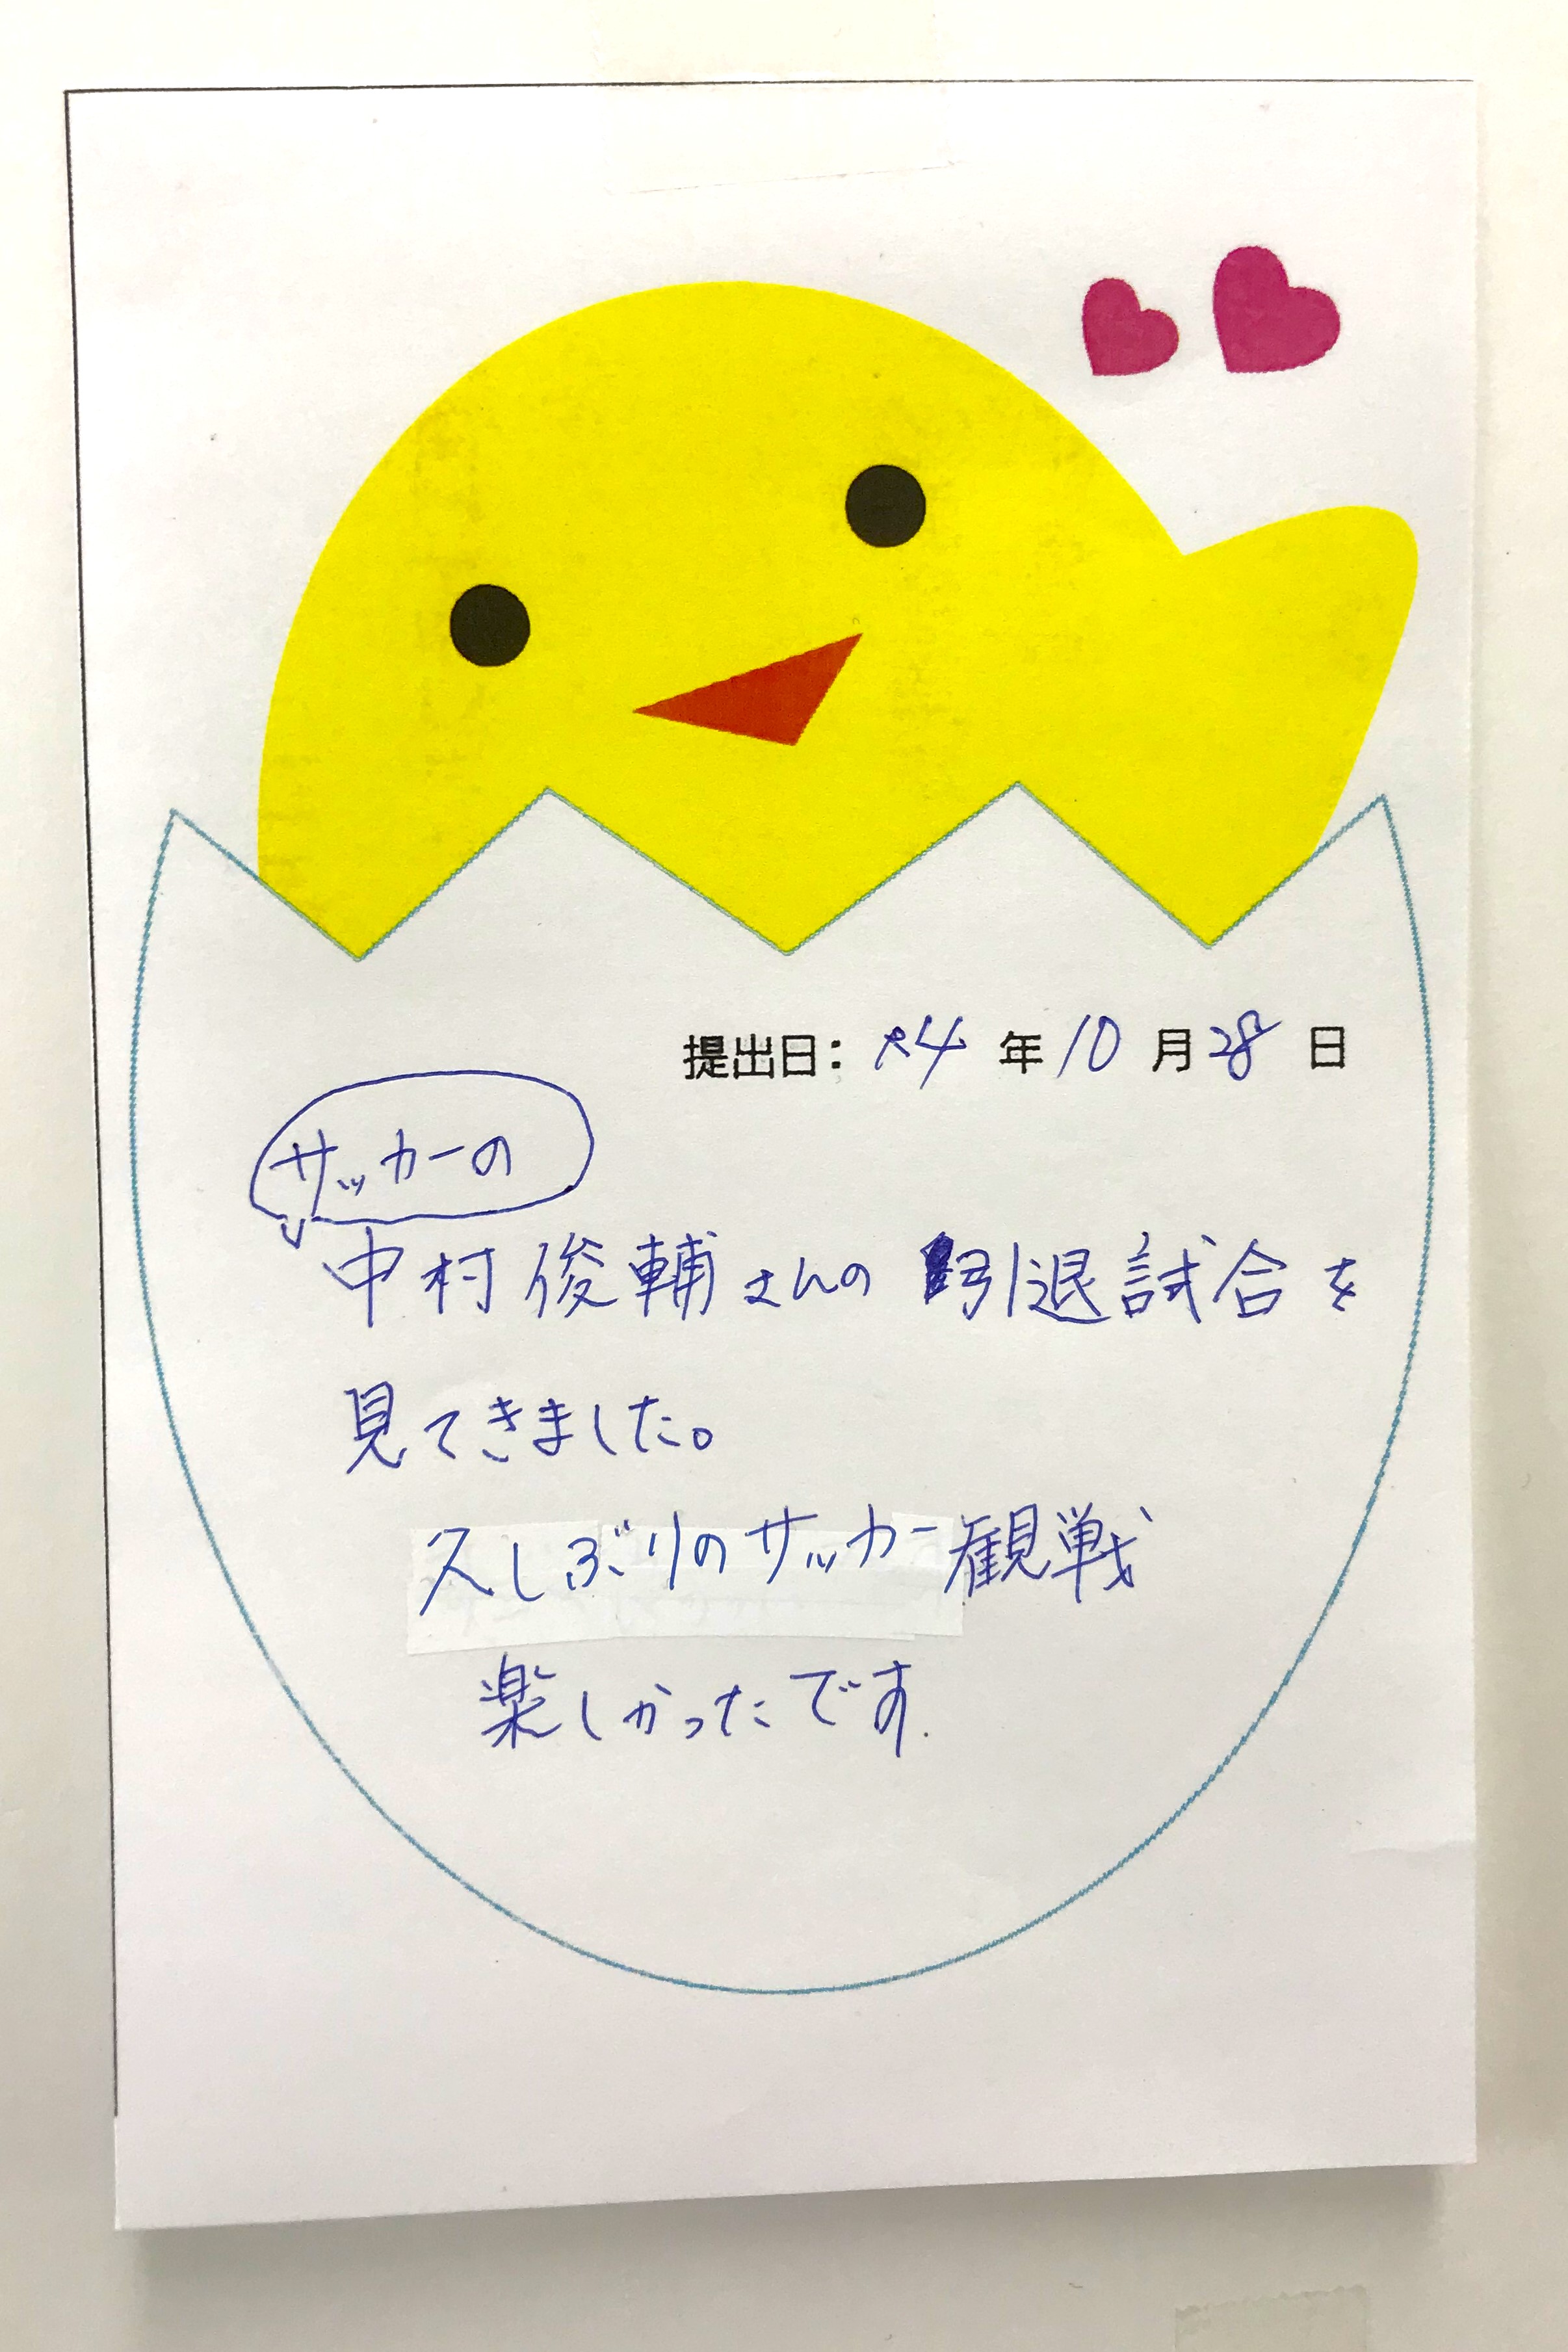 提出日：R4年10月28日
サッカーの
中村俊輔さんの引退試合を
見てきました。
久しぶりのサッカー観戦
楽しかったです.